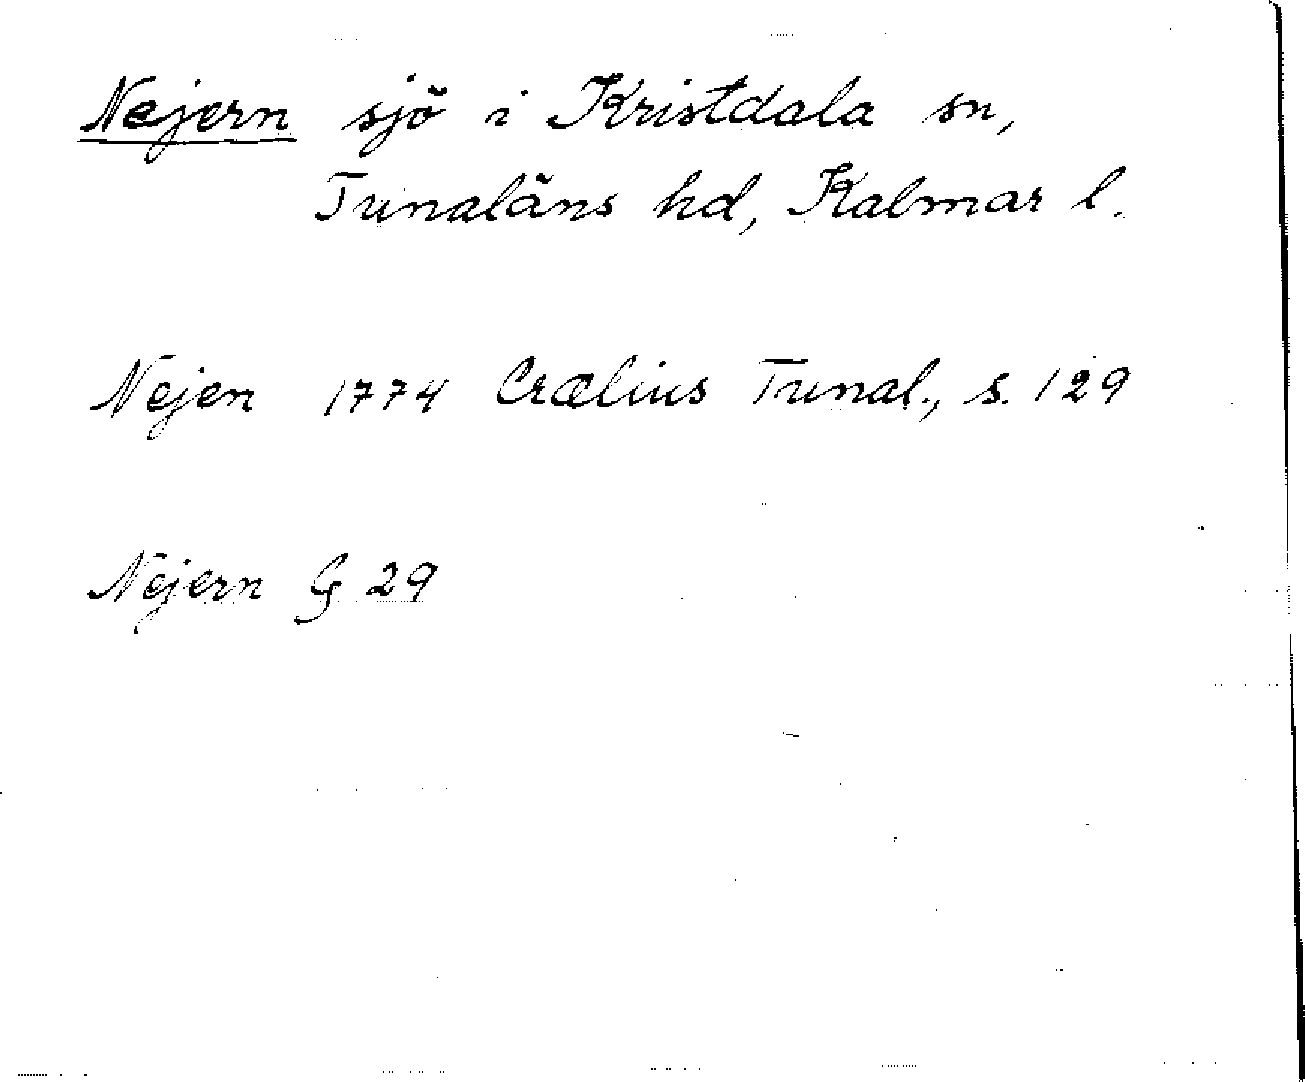 Nejern sjö i Kristdala sn,
Tunaläns hd, Kalmar l.
Nejen 1774 Crælius Tunal., s. 129
Nejern G 29